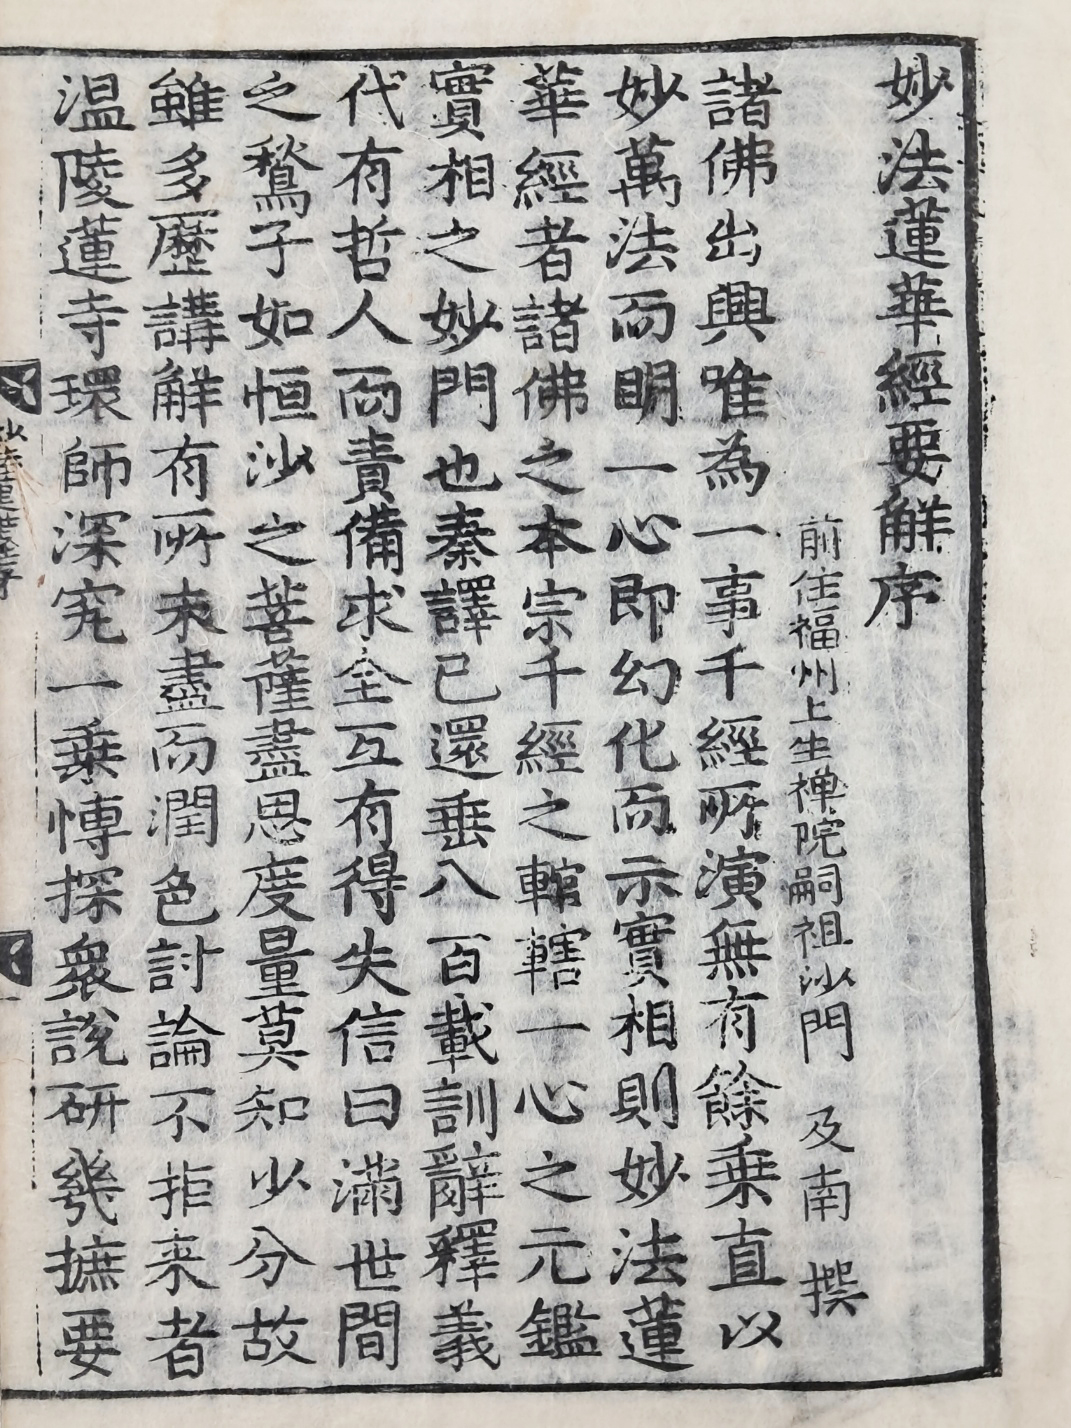 妙法蓮華經要觧序
前住福州上生禅院嗣祖沙門 及南 撰
諸佛出興唯為一事千經所演無有餘乗直以
妙萬法而明一心即幻化而示實相則妙法蓮
華經者諸佛之本宗千經之轄轄一心之元鑑
實相之妙門也秦譯已還垂八百載訓辭釋義
代有哲人而責備求全互有得失信曰滿世間
之鶖子如恒沙之菩薩盡思度量莫知少分故
雖多歷講觧有所未盡而潤色討論不拒来者
温陵蓮寺環師深究一乗愽探衆說研幾摭要